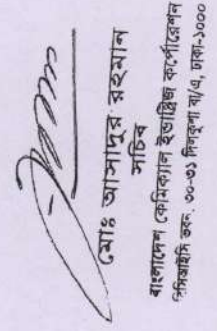 মোঃ আসাদুর রহমান
সচিব
বাংলাদেশ কেমিক্যাল ইন্ডাস্ট্রিজ কর্পোরেশন
বিসিআইসি ভবন, ৩০-৩১ দিলকুশা বা/এ, ঢাকা-১০০০